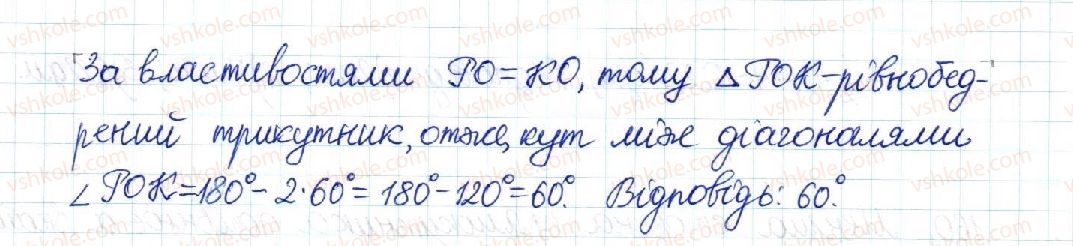 За властивостями PO=KO, тому △POK-рівнобед-
рений трикутник, отже, кут між діагоналями
∠POK=180°-2·60°=180°-120°=60°. Відповідь: 60°.